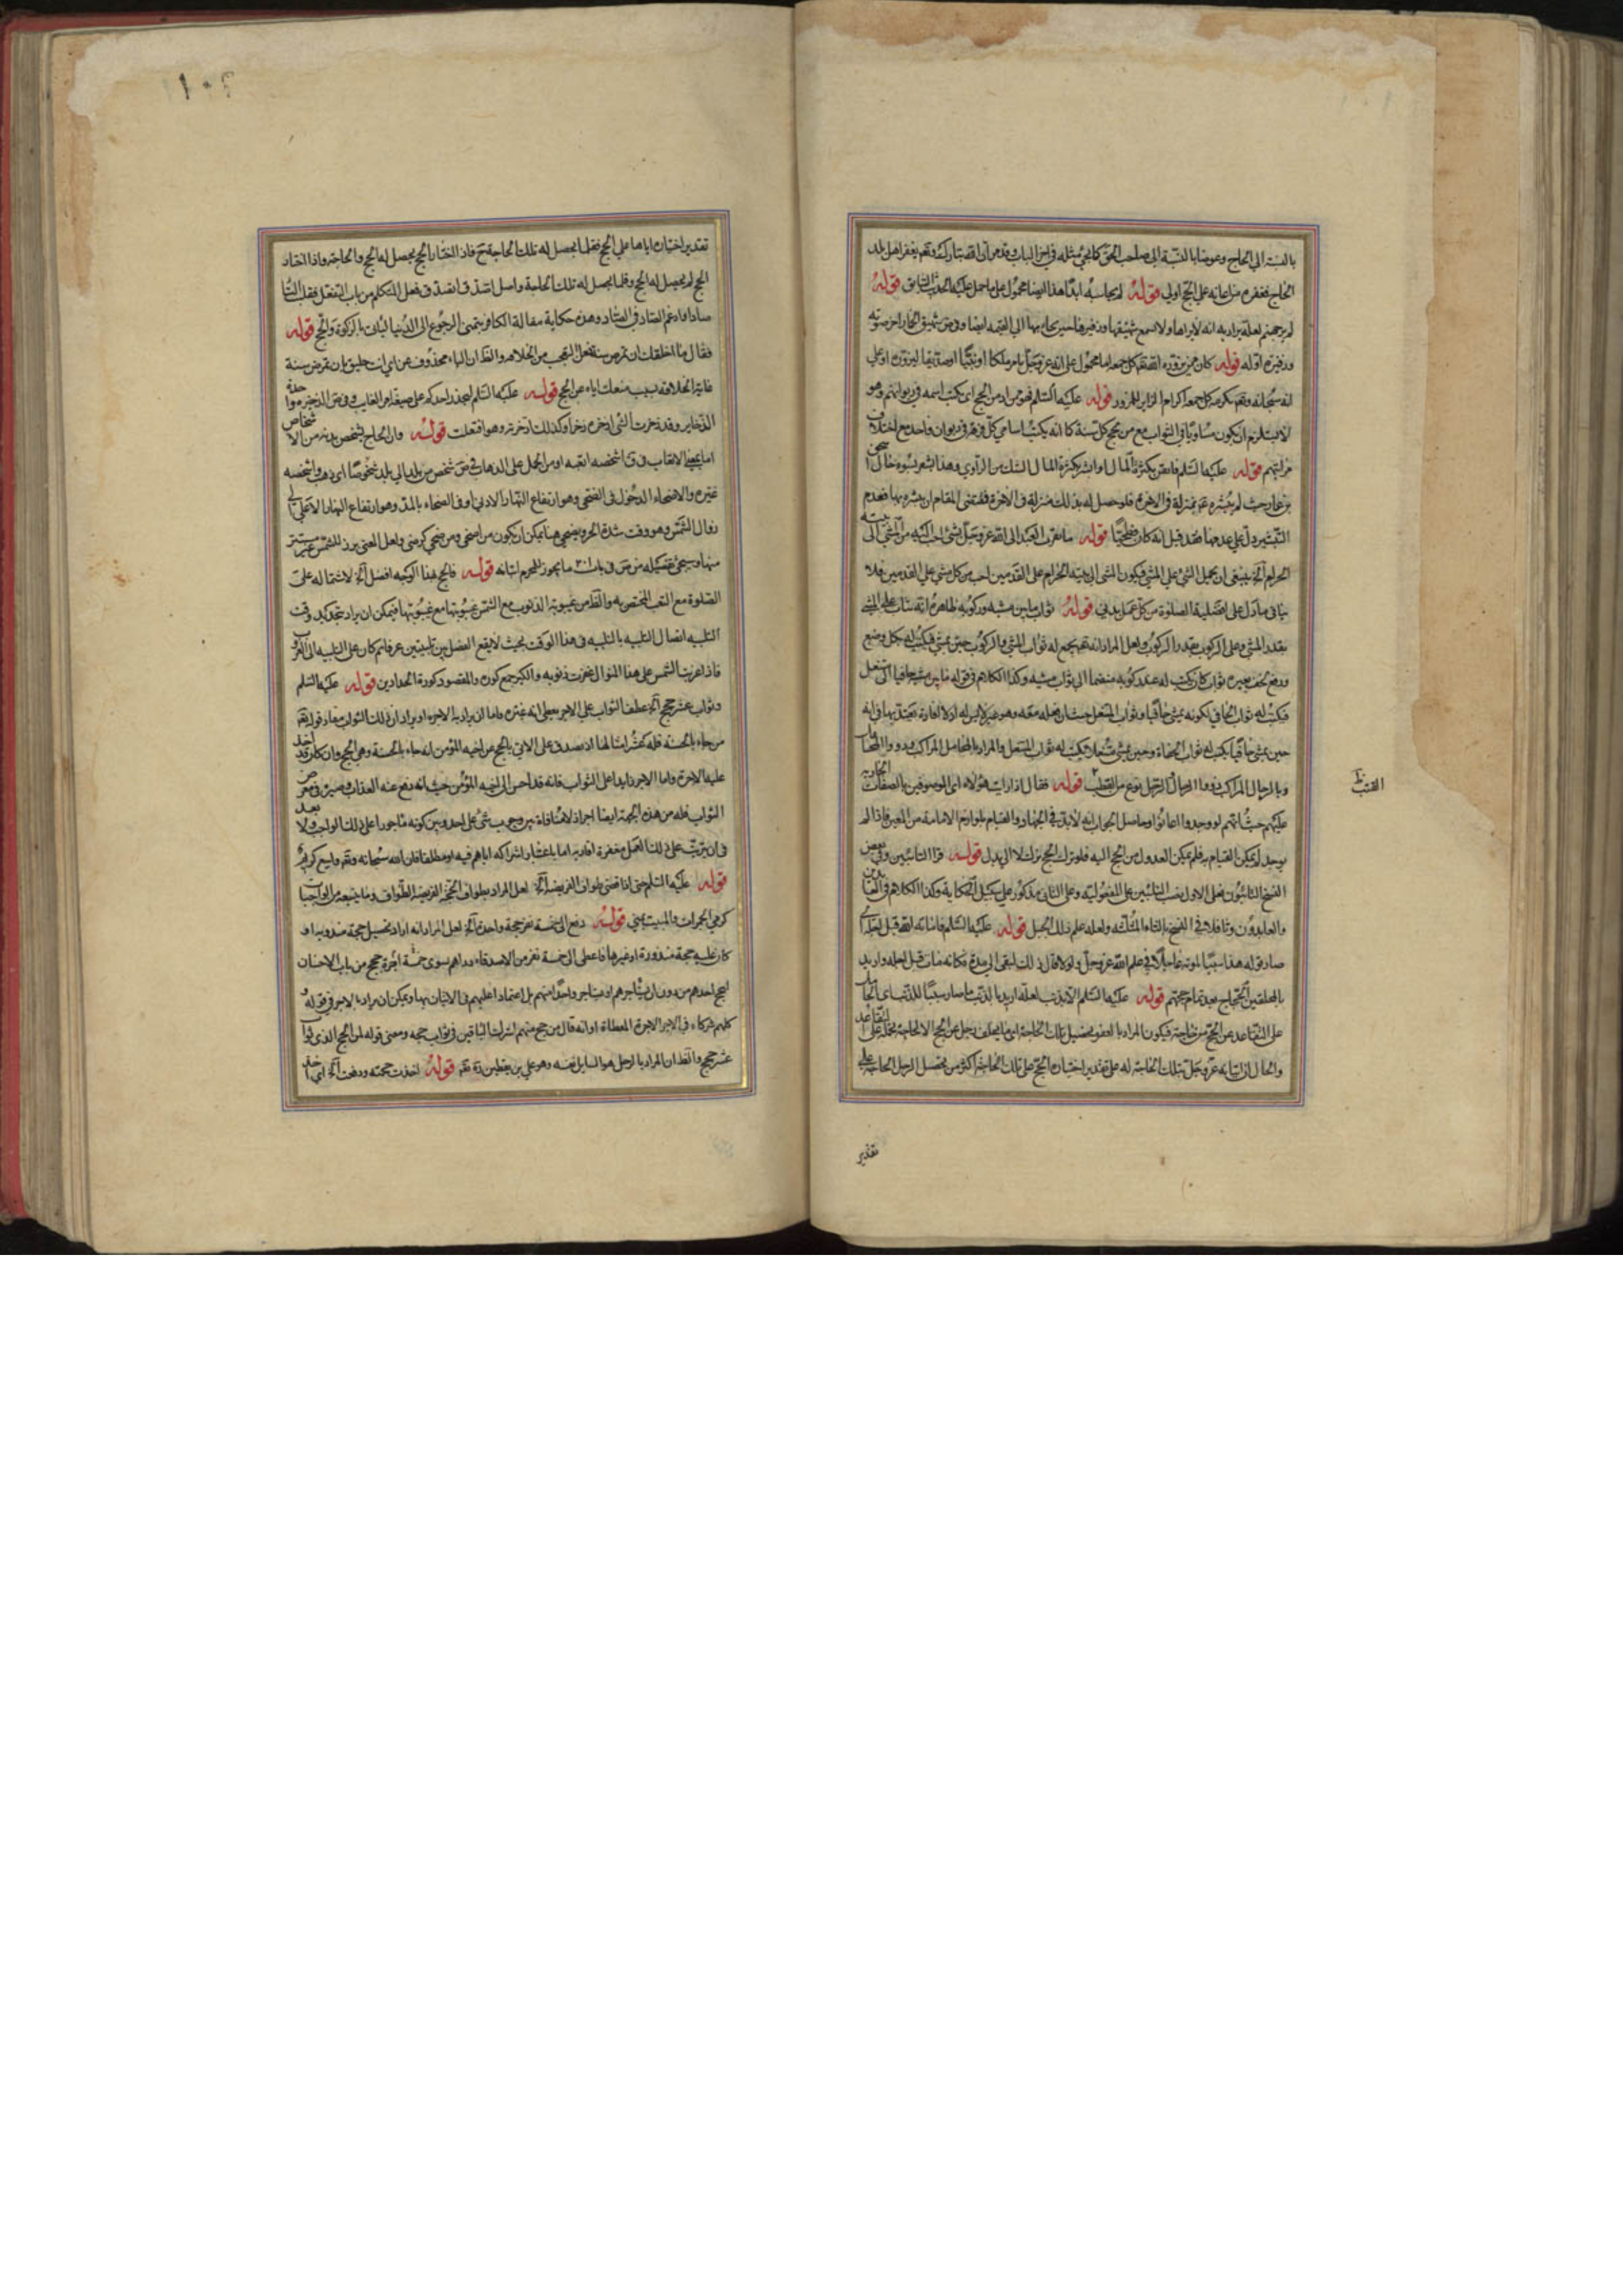 بالنسبة الى الحاج وعوضا بالنسبة الى صاحب الحق كما يجئ مثله في اخر الباب وقد مر ان الله تبارك وتعالى يغفر لاهل بلد
الحاج فغفره من اعانه على الحج اولى قوله لم يحاسبه ابدا هذا ايضا محمول على ما حمل عليه الحديث السابق قوله
لم ير جهنم لعله يراد به انه لا يراها ولا يسمع شهيقها وزفيرها حين يجاء بها الى القيمة ايضا وفي ص شهيق الحمار اخر صوته
وزفيره اوله قوله كان ممن يزوره الله تعالى كل جمعة اما محمول على انه عز وجل يامر ملكا او نبيا او صديقا ليزوره او على
انه سبحانه وتعالى يكرمه كل جمعة اكرام الزاير للمزور قوله عليه السلم فهو من ادمن الحج اى يكتب اسمه في ديوانهم وهو
لا يستلزم ان يكون مساويا في الثواب مع من يحج كل سنة كما انه يكتب اسامي كل فرقة في ديوان واحد مع اختلاف
مراتبهم قوله عليه السلم فايقن بكثرة المال او ابشر بكثرة المال الشك من الراوي وهذا يشعر بسوء حال اسحق
بن عمار حيث لم يبشره بمنزلة في الاخرة فلو حصل له بذلك منزلة في الاخرة فمقتضى المقام ان يبشره بها فعدم
التبشير دل على عدمها فقد قيل انه كان فطحيا قوله ما تقرب العبد الى الله عز وجل بشئ احب اليه من المشي الى بيته
الحرام الخ ينبغي ان يحمل الشئ على المشي فيكون المشي الى بيته الحرام على القدمين احب من كل مشي على القدمين فلا
ينافي ما دل على افضلية الصلوة من كل عمل بدني قوله ثواب ما بين مشيه وركوبه ظاهره انه يثاب على المشي
بقدر المشي وعلى الركوب بقدر الركوب ولعل المراد انه تعالى يجمع له ثواب المشي والركوب حين يمشي فيكتب له بكل وضع
ورفع بخف بعيره ثواب كان يكتب له عند ركوبه منضما الى ثواب مشيه وكذا الكلام في قوله ما بين مشيه حافيا الى متنعل
فيكتب له ثواب الحافي لكونه يمشي حافيا وثواب المتنعل حيث ان نعله معه وهو غير لابس له اذ لا فايدة يعتد بها في انه
حين يمشي حافيا يكتب له ثواب الحفاة وحين يمشي متنعلا يكتب له ثواب المتنعل والمراد بالمحامل المراكب ذووا المحامل
وبالرحال المراكب ذووا الرحال الرحل نوع من القطب قوله فقال اذا رايت هؤلاء اى الموصوفين بالصفات المجاوبة
عليهم حيث انهم لو وجدوا اعانوا وحاصل الجواب انه لا بد في الجهاد والقيام بلوازم الامامة من المعين فاذا لم
يوجد لم يمكن القيام به فلم يمكن العدول من الحج اليه فلو ترك الحج ترك لا الى بدل قوله قرا التائبين وفي بعض
النسخ التائبون فعلى الاول نصب التائبين على المفعولية وعلى الثاني مذكور على سبيل الحكاية وكذا الكلام في العابدين
والعابدون وثافلا في النسخ بالثاء المثلثة ولعله علم ذلك الجبل قوله عليه السلم فاماته الله قبل لعله اى
صار قوله هذا سببا لموته عاجلا في علم الله عز وجل ولولا قال ذلك لبقي الى مدة فكانه مات قبل اجله واريد
بالمحلقين الحجاج بعد تمام حجتهم قوله عليه السلم الا بذنب لعله اريد بالذنب ما صار سببا للذنب اى الحامل
على التقاعد عن الحج من حاجته فيكون المراد بالعفو تحصيل تلك الحاجة اى ما يخلف رجل عن الحج الا لحاجة تحمله على التقاعد
والحال ان اتيانه عز وجل بتلك الحاجة له على تقدير اختياره الحج على تلك الحاجة اكثر من تحصيل الرجل الحاجة على
القتب ظ
تقدير
١٠٢
تقدير اختياره اياها على الحج فقلما يحصل له تلك الحاجة ح فاذا اختار الحج يحصل له الحج والحاجة واذا اختار
الحج لم يحصل له الحج وقلما يحصل له تلك الحاجة واصل اصدق اتصدق فعل المتكلم من باب التفعل فقلب التا
صادا فادغم الصاد في الصاد وهذه حكاية مقالة الكافر يتمنى الرجوع الى الدنيا ليات بالزكوة والحج قوله
فقال ما اخلقك ان تمرض سنة فعل التعجب من الخلاقة والظ ان الباء محذوف عن اي انت خليق بان تمرض سنة
غاية الخلاقة بسبب منعك اياه عن الحج قوله عليه السلم ليحذر احدكم على صيغة امر الغايب وفي ص الذخيرة واحدة
الذخاير وقد ذخرت الشئ اذخره ذخرا وكذلك ادخرته وهو افتعلت قوله وان الحاج ليشخص بدنه من الاشخاص
اما بمعنى الاتعاب في ق اشخصه اتعبه او من الحمل على الذهاب في ص شخص من بلد الى بلد شخوصا اى ذهب واشخصه
غيره والاضحاء الدخول في الضحى وهو ارتفاع النهار الادنى او في الضحاء بالمد وهو ارتفاع النهار الاعلى الى
زوال الشمس وهو وقت شدة الحر ويضحي هنا يمكن ان يكون من اضحى ومن ضحي كرضي ولعل المعنى برز للشمس غير مستتر
منها وسيجئ تفصيله من ص في باب ٣٠١ ما يجوز للمحرم اتيانه قوله فالحج بهذا الوجه افضل الخ لاشتماله على
الصلوة مع التعب المختص به والظ من غيبوبة الذنوب مع الشمس غيبوبتها مع غيبوبتها فيمكن ان يراد بتجدد وقت
التلبية اتصال التلبية بالتلبية في هذا الوقت بحيث لا يقع الفصل بين تلبيتين عرفا ثم كان على التلبية الى الغروب
فاذا غربت الشمس على هذا المنوال غفرت ذنوبه والكير جمع كوره والمقصود كورة الحدادين قوله عليه السلم
وثواب عشر حجج الخ عطف الثواب على الاجر يعطي انه غيره فاما ان يراد بالاجر او يراد ان ذلك الثواب مفاد قوله تعالى
من جاء بالحسنة فله عشر امثالها اذ يصدق على الاتي بالحج عن اخيه المؤمن انه جاء بالحسنة وهي الحج وان كان قد اخذ
عليه الاجرة واما الاجر زايدا على الثواب فانه قد احسن الى اخيه المؤمن حيث انه دفع عنه العقاب وصيره في معرض
الثواب فله من هذه الجهة ايضا اجر اذ لا منافاة بين وجوب شئ على احد وبين كونه ماجورا على ذلك الواجب ولا بعد
في ان يترتب على ذلك العمل مغفرة اقاربه اما باعتبار اشراكه اياهم فيه او مطلقا فان الله سبحانه وتعالى واسع كريم
قوله عليه السلم حتى اذا قضى طواف الفريضة الخ لعل المراد بطواف الحج الفريضة الطواف وما يتبعه من الواجبات
كرمي الجمرات والمبيت بمنى قوله دفع الى خمسة نفر حجة واحدة الخ لعل المراد انه اراد تحصيل حجة مندوبة او
كان عليه حجة منذورة او غيرها فاعطى الى خمسة نفر من الاصدقاء دراهم سوى خمسة اجرة حجج من باب الاحسان
ليحج احدهم من دون ان يستاجرهم او يستاجر واحدا منهم بل اعتمادا عليهم في الاتيان بها ويمكن ان يراد بالاجر في قوله و
كلهم شركاء في الاجر الاجرة المعطاة او انه قال من حج منهم اشرك الباقين في ثواب حجه ومعنى قوله لمن الحج الذي ثواب
عشر حجج والظ ان المراد بالرجل هو السايل نفسه وهو علي بن يقطين رة ته قوله اخذت حجته ودفعت الخ اى اخذ